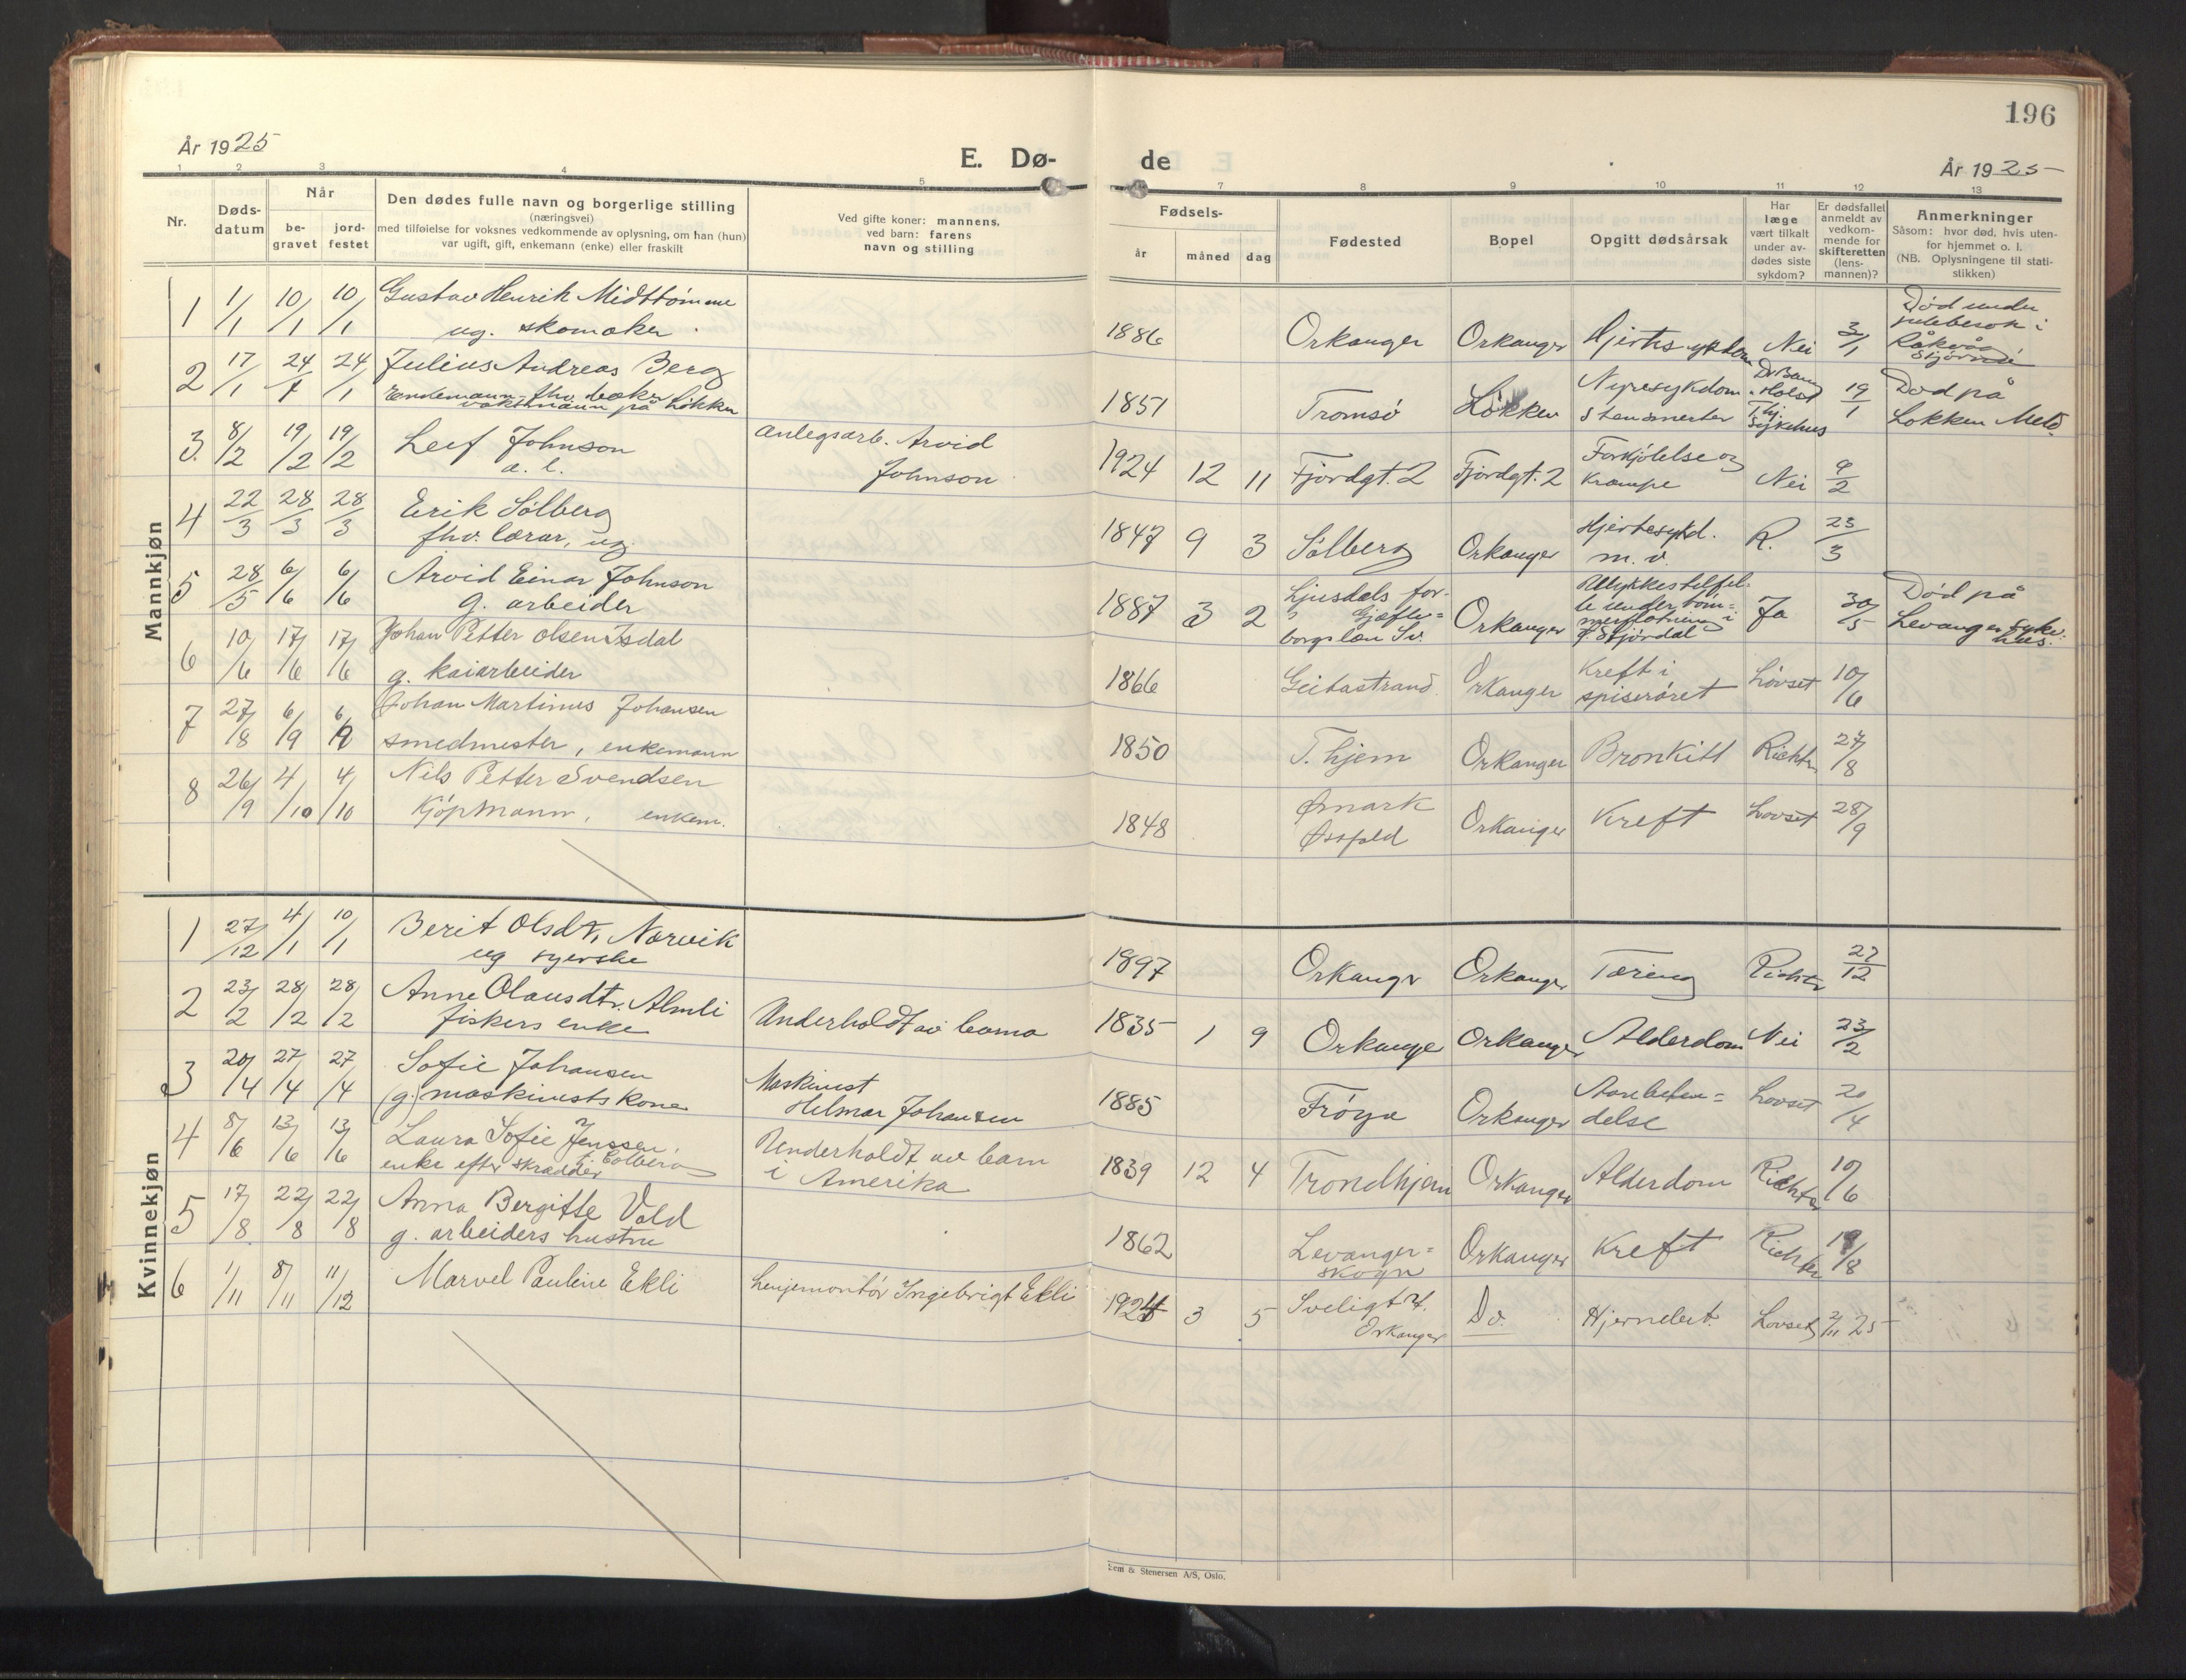 196
År 1925
E. Dø-
de
År 1925
1 2 3 4 5
7 8 9 10 11 12 13
Nr.
Døds-
datum
Når
be-
gravet
jord-
festet
Den dødes fulle navn og borgerlige stilling
(næringsvei)
med tilføielse for voksnes vedkommende av oplysning, om han (hun)
var ugift, gift, enkemann (enke) eller fraskilt
Ved gifte koner: mannens,
ved barn: farens
navn og stilling
Fødsels-
år måned dag
Fødested
Bopel
Opgitt dødsårsak
Har
læge
vært tilkalt
under av-
dødes siste
sykdom?
Er dødsfallet
anmeldt av
vedkom-
mende for
skifteretten
(lens-
mannen)?
Anmerkninger
Såsom: hvor død, hvis uten-
for hjemmet o. l.
(NB. Oplysningene til stati-
stikken)
Mannkjøn
1 1/1 10/1 10/1 Gustav Henrik Midttömme
ug. skomaker
1886 Orkanger Orkanger Hjertesykdom Nei 3/1 Död under
julebesok i
Råkvåg
2 17/1 24/1 24/1 Julius Andreas Berg
Enkemann, fhv. baker
vaktmann på Lökken
1851 Tromsö Lökken Nyresykdom
Stensmerter
Holst
Thj
Sykehus
19/1 Död på
Lokken Meld.
3. 8/2 19/2 19/2 Leif Johnson
a. l.
anlegsarb. Arvid
Johnson
1924 12 11 Fjordgt. 2 Fjordgt. 2 Forkjölelse og
krampe Nei 9/2
4 22/3 28/3 28/3 Erik Sölberg
fhv. lærar, ug.
1847 9 3 Sölberg Orkanger Hjertesykd.
m. v. R. 23/3
5 28/5 6/6 6/6 Arvid Einar Johnson
g. arbeider
1887 3 2 Ljusdals for-
s Gjæfle-
borgs len Sv. Orkanger Ulykkestilfel-
le under töm-
merflötning i
Stjördal Ja 30/5 Död på
Levanger syke-
hus.
6 10/6 17/6 17/6 Johan Petter Olsen Isdal
g. kaiarbeider
1866 Geitastrand Orkanger Kreft i
spiseröret Lövset 10/6
7 27/8 6/9 6/9 Johan Martinus Johansen
smedmester, enkemann
1850 T. hjem Orkanger Bronkitt Richter 27/8
8 26/9 4/10 4/10 Nils Petter Svendsen
Kjöpmann, enkem.
1848 Ømark
Østfold Orkanger Kreft Lovset 28/9
Kvinnekjøn
1 27/12 4/1 10/1 Berit Olsdt. Norvik
ug syerske
1897 Orkanger Orkanger Tæring Richter 27/12
2 23/2 28/2 28/2 Anne Olausdtr. Almli
fiskers enke
Underholdt av barna
1835 1 9 Orkanger Orkanger Alderdom Nei 23/2
3 20/4 27/4 27/4 Sofie Johansen
(g) maskinists kone
Maskinist
Helmar Johansen
1885 Fröya Orkanger Aarebeten-
delse Lovset 20/4
4 8/6 13/6 13/6 Laura Sofie Jenssen,
enke efter skrædder
Underholdt av barn
i Amerika
1839 12 4 Trondhjem Orkanger Alderdom Richter 10/6
5 17/8 22/8 22/8 Anna Bergitte Vold
g. arbeiders hustru
1862 Levanger-
skogn Orkanger Kreft Richter 19/8
6 1/11 8/11 11/12 Marvel Pauline Ekli
Linjemontör Ingebrigt Ekli
1924 3 5 Sveligt 4.
Orkanger Do. Hjernebet. Lovset 2/11 25
Sem & Stenersen A/S, Oslo.